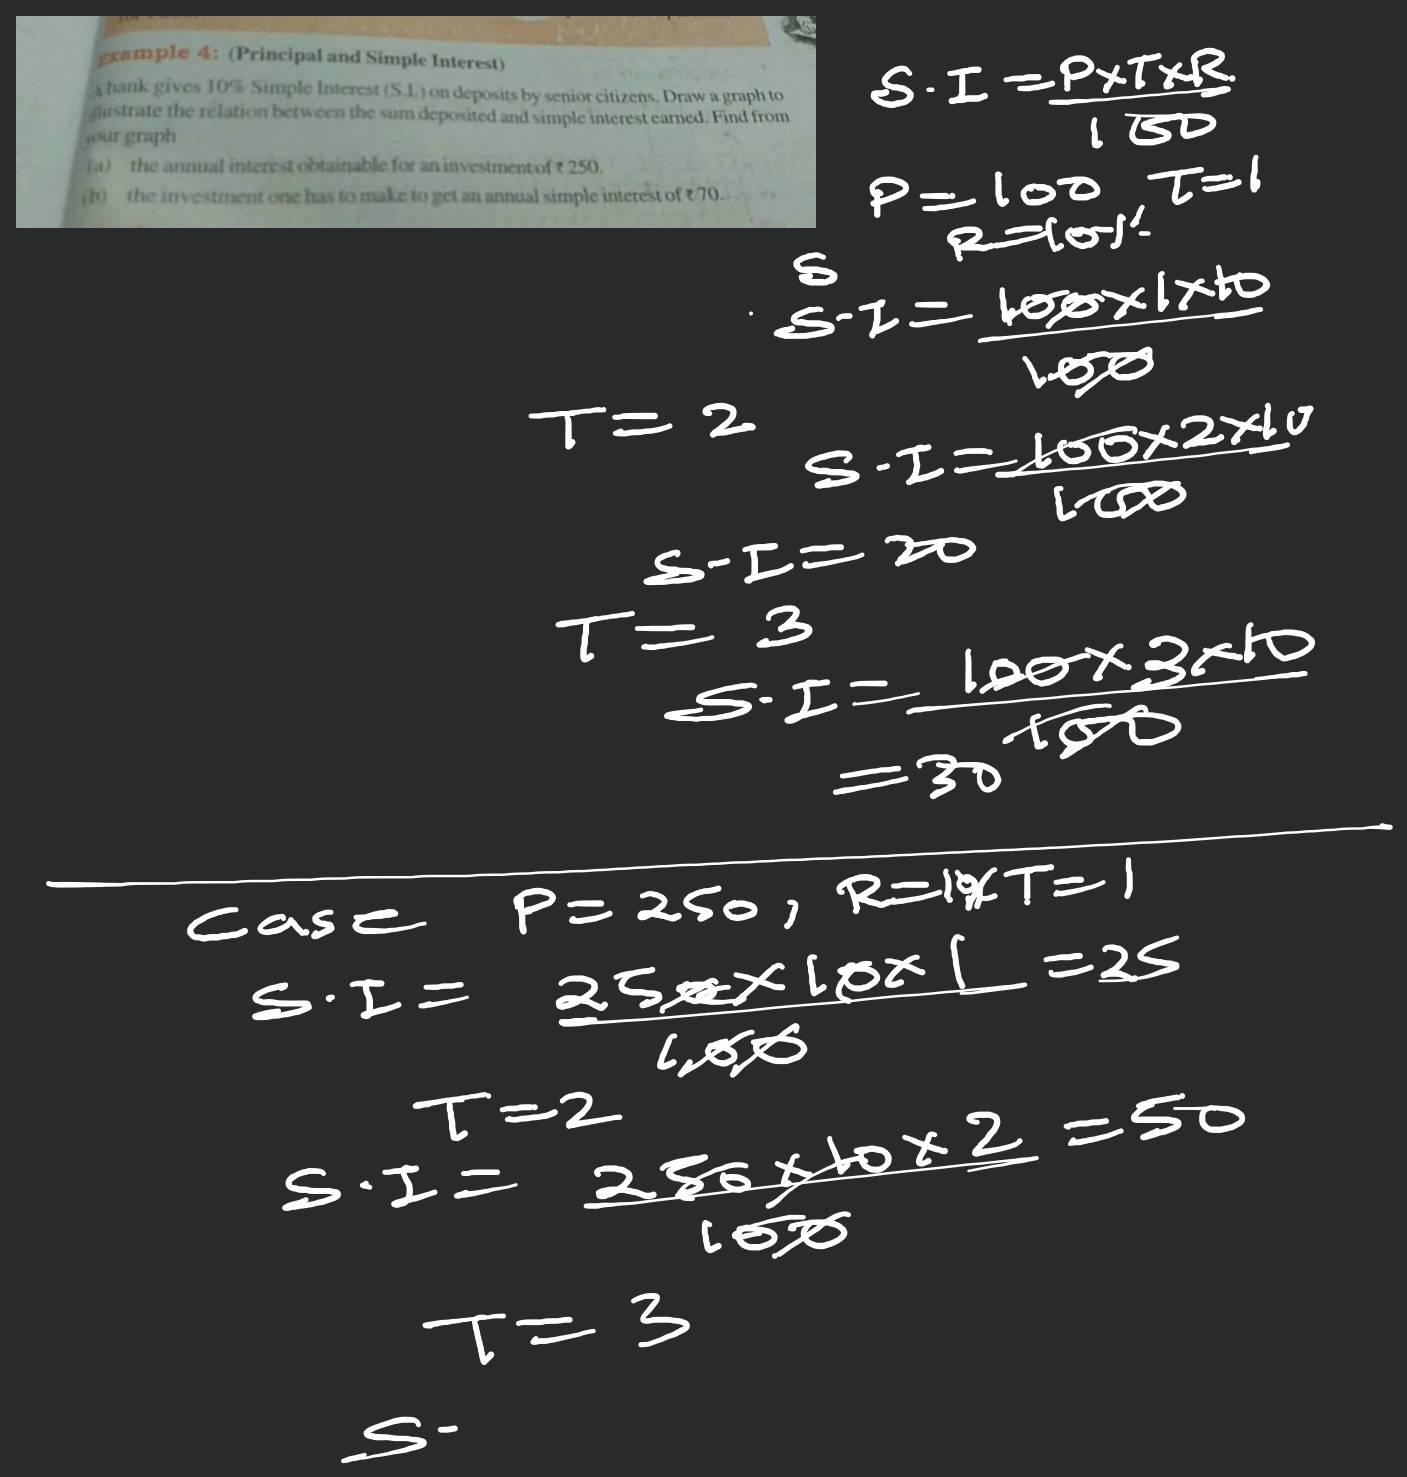 Example 4: (Principal and Simple Interest)
A bank gives 10% Simple Interest (S.I.) on deposits by senior citizens. Draw a graph to
illustrate the relation between the sum deposited and simple interest earned. Find from
your graph
(a) the annual interest obtainable for an investment of ₹ 250.
(b) the investment one has to make to get an annual simple interest of ₹ 70.
S.I = P×T×R
100
P=100 T=1
R=10%
S
S-I = 100×1×10
100
T=2
S-I = 100×2×10
100
S-I=20
T=3
S-I = 100×3×10
100
=30
Case P=250, R=10% T=1
S.I = 250×10×1 =25
100
T=2
S.I = 250×10×2 =50
100
T=3
S-